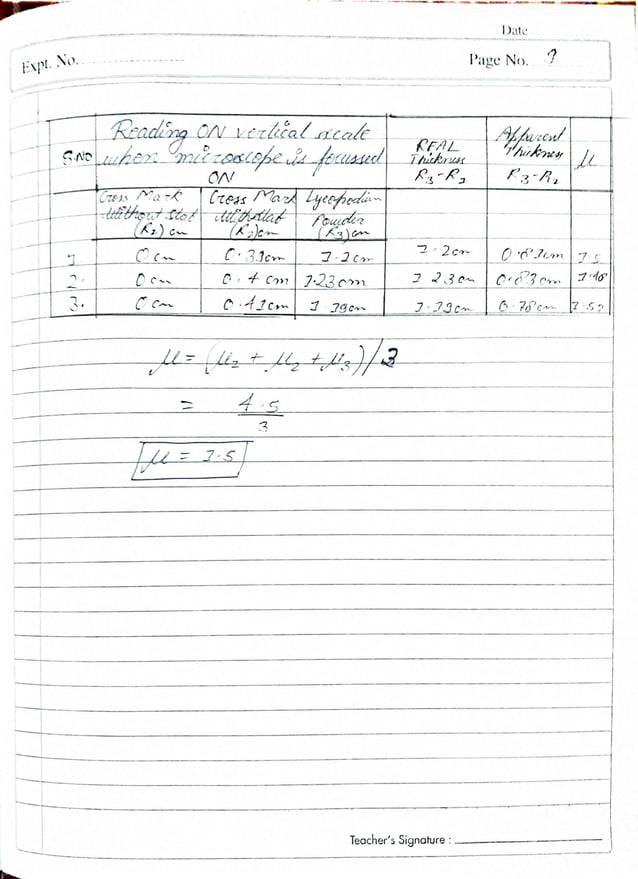 Date
Expt. No.
Page No. 9
Reading ON vertical scale
when microscope is focussed
ON
S.NO
REAL
Thickness
R3-R1
Apparent
Thickness
R3-R2
μ
Cross Mark
Without Slab
(R1) cm
Cross Mark
With Slab
(R2) cm
Lycopodium
Powder
(R3) cm
1 0 cm 0.31cm 1.2cm 1.2cm 0.81cm 1.5
2. 0 cm 0.4 cm 1.23cm 1.23cm 0.83cm 1.48
3. 0 cm 0.41cm 1.19cm 1.19cm 0.78cm 1.52
μ = (μ1 + μ2 + μ3)/3
= 4.5
3
μ = 1.5
Teacher's Signature :